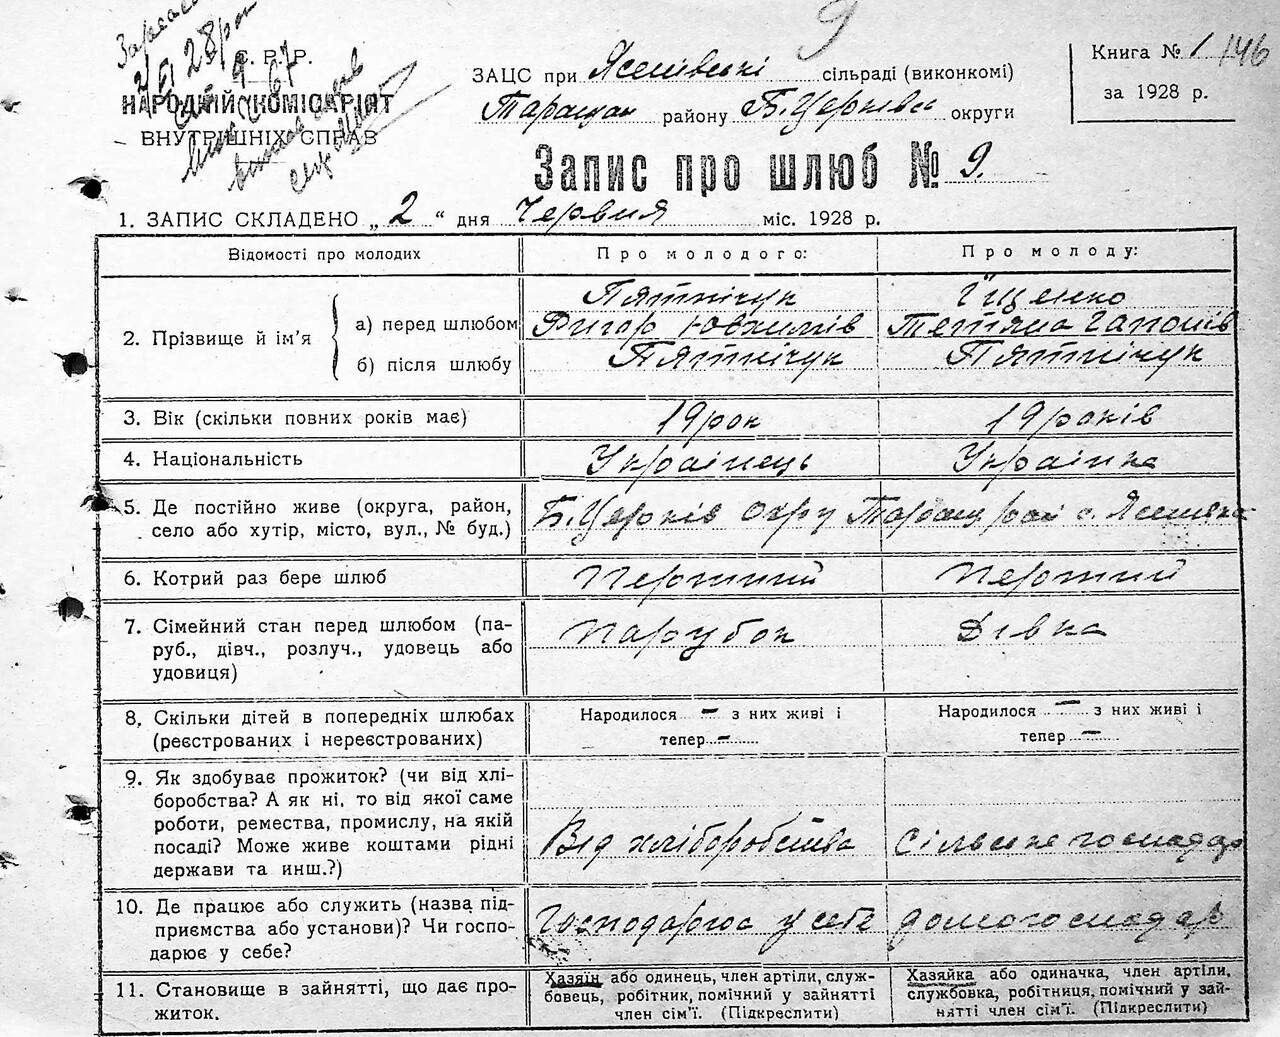 С. Р. Р.
НАРОДНІЙ КОМІСАРІЯТ
ВНУТРІШНІХ СПРАВ
9
ЗАЦС при Ясенівські сільраді (виконкомі)
Таращан району Б.Церківс округи
Книга № 1 146
за 1928 р.
Запис про шлюб № 9.
1. ЗАПИС СКЛАДЕНО „ 2 “ дня Червня міс. 1928 р.
Відомості про молодих Про молодого: Про молоду:
Пятнічук Іщенко
2. Прізвище й ім’я а) перед шлюбом ГригорЮвхимів Тетяна Гапонів
б) після шлюбу Пятнічук Пятнічук
3. Вік (скільки повних років має) 19 рок 19 років
4. Національність Українець Українка
5. Де постійно живе (округа, район,
село або хутір, місто, вул., № буд.) Б.Церків окру Таращ рай с. Ясенівка
6. Котрий раз бере шлюб Перший Перший
7. Сімейний стан перед шлюбом (па-
руб., дівч., розлуч., удовець або
удовиця) Парубок Дівка
8. Скільки дітей в попередніх шлюбах
(реєстрованих і нереєстрованих) Народилося – з них живі і
тепер – Народилося – з них живі і
тепер –
9. Як здобуває прожиток? (чи від хлі-
боробства? А як ні, то від якої саме
роботи, ремества, промислу, на якій
посаді? Може живе коштами рідні
держави та инш.?) Від хліборобства Сільське господар
10. Де працює або служить (назва під-
приємства або установи)? Чи госпо-
дарює у себе? Господарює у себе домогосподар
11. Становище в зайнятті, що дає про-
житок. Хазяїн або одинець, член артіли, служ-
бовець, робітник, помічний у зайнятті
член сім’ї. (Підкреслити) Хазяйка або одиначка, член артіли,
службовка, робітниця, помічний у зай-
нятті член сім’ї. (Підкреслити)